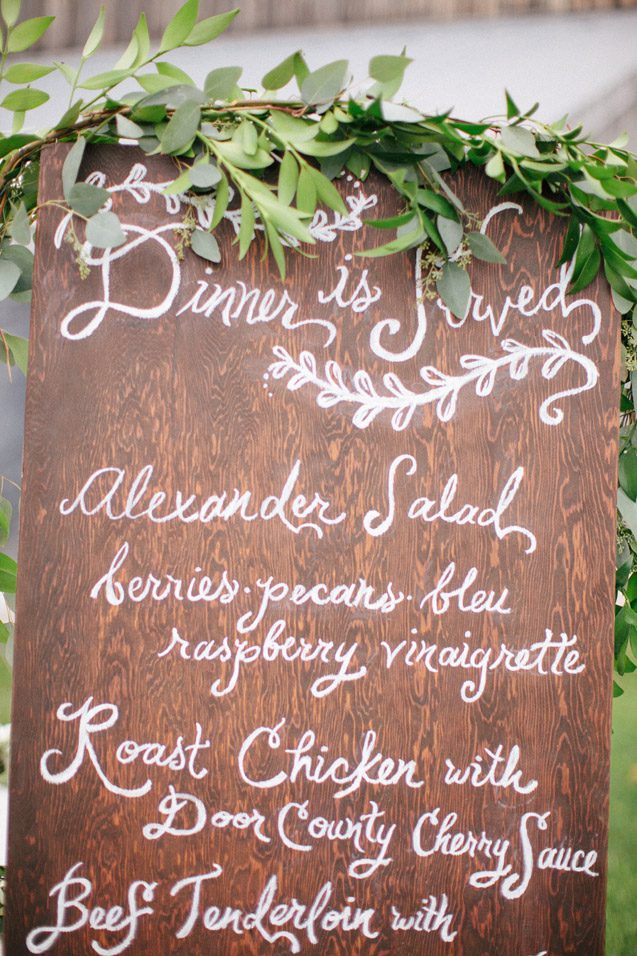 Dinner is Served
Alexander Salad
berries · pecans · bleu
raspberry vinaigrette
Roast Chicken with
Door County Cherry Sauce
Beef Tenderloin with